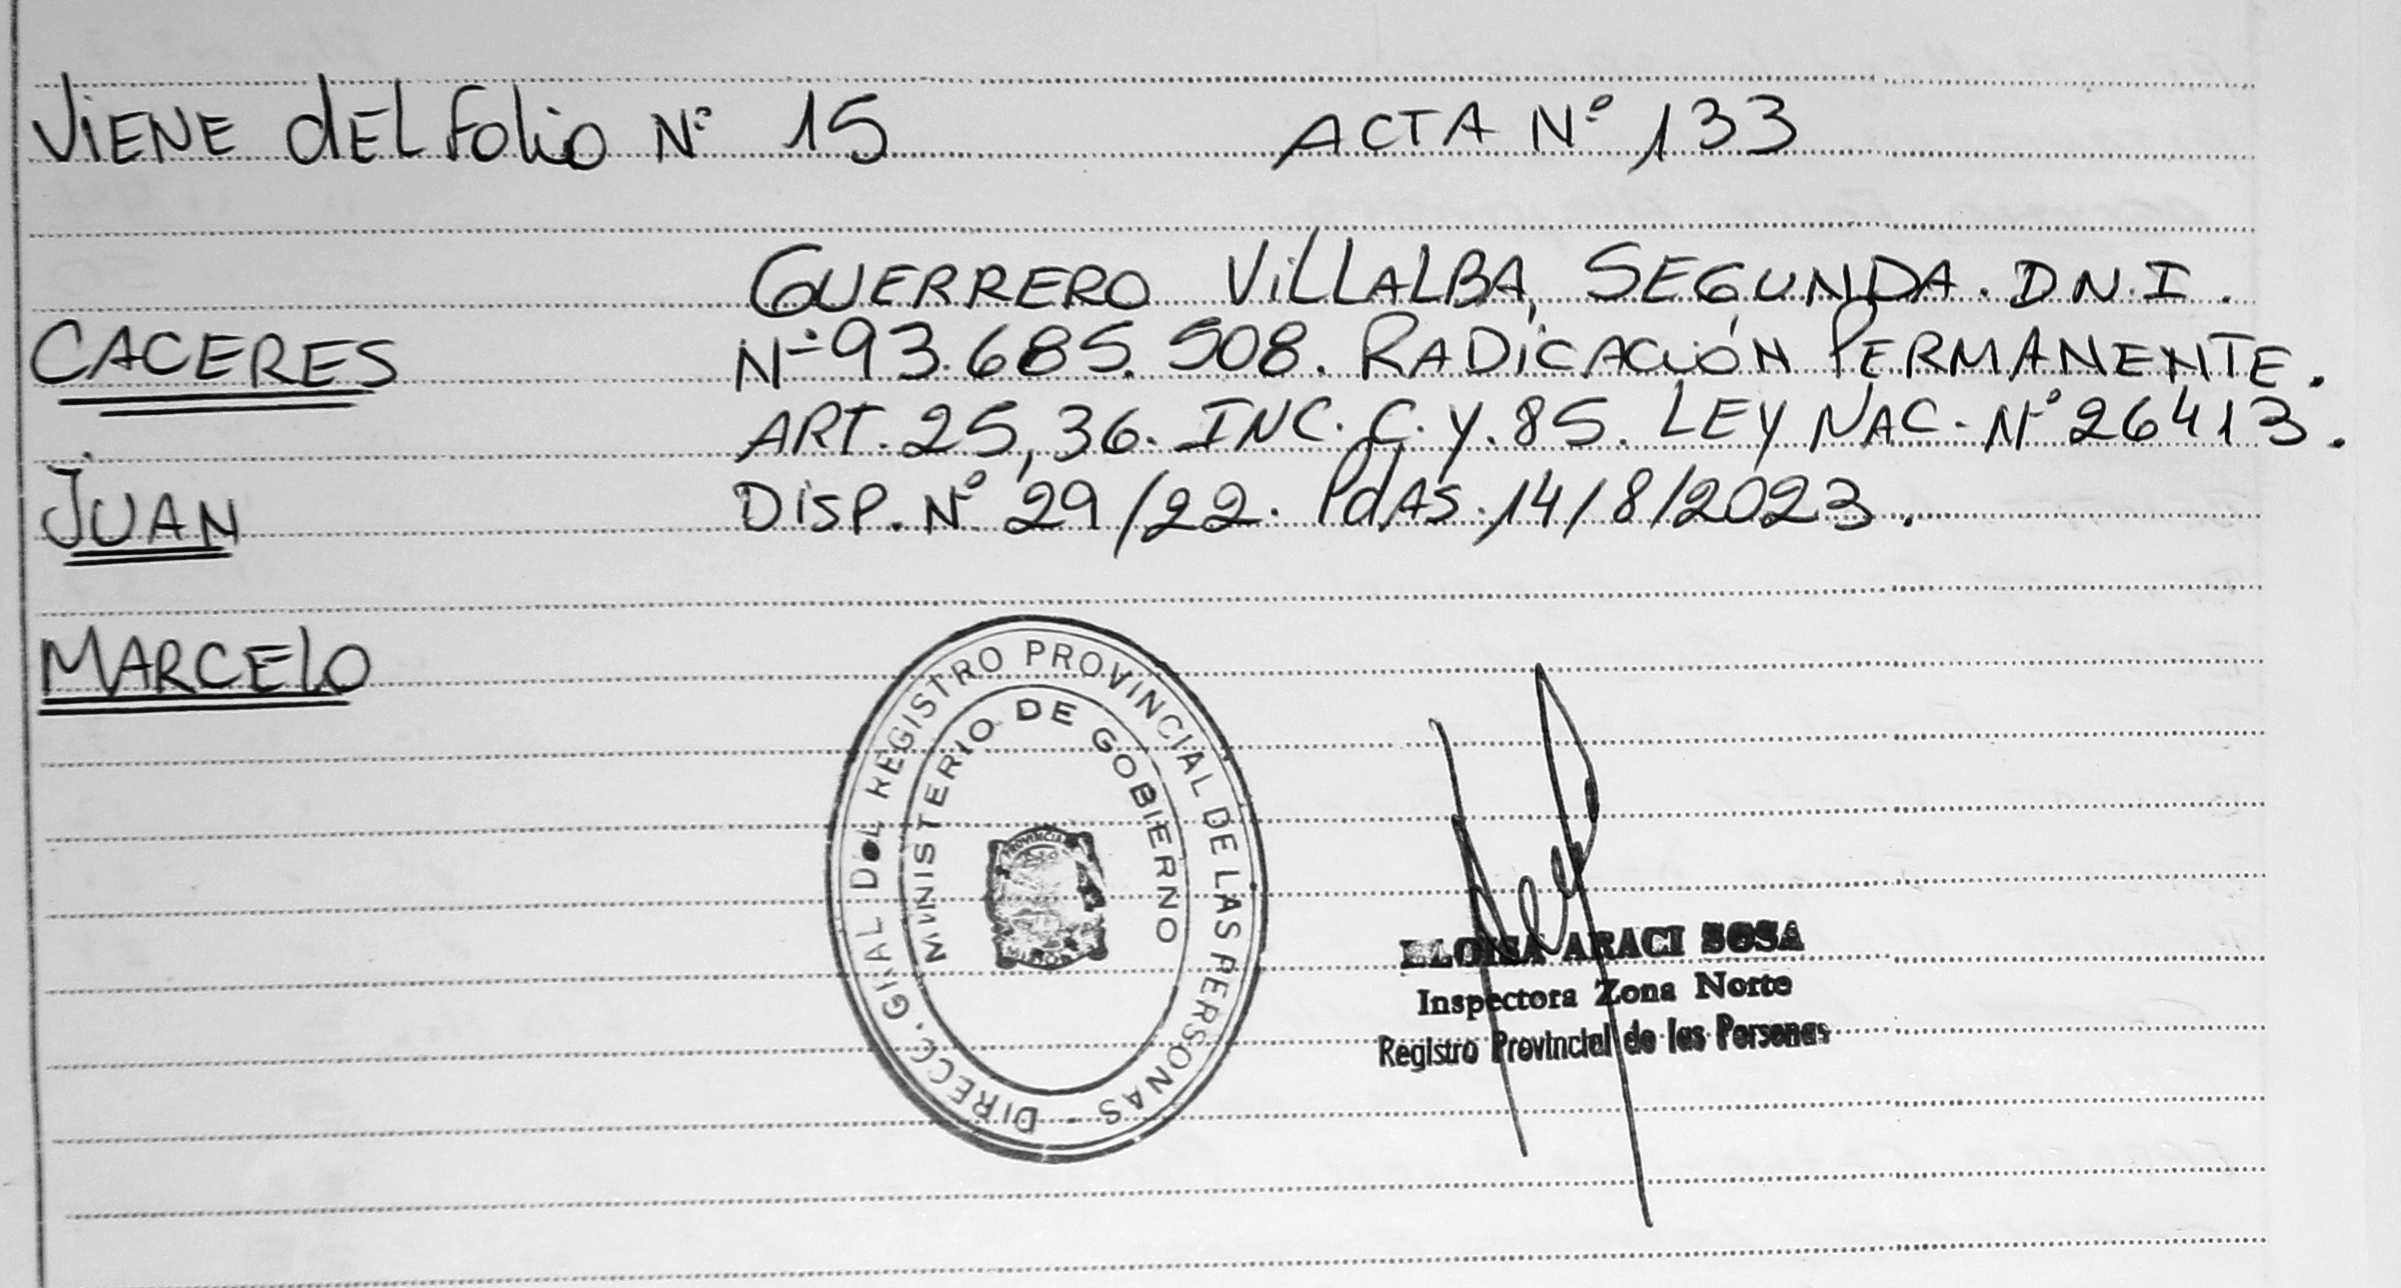 ViENE dEL Folio N° 15 ACTA N° 133
GUERRERO ViLLALBA, SEGUNDA. D.N.I.
CACERES N° 93.685.508. RADiCACiÓN PERMANENTE.
ART. 25, 36. INC. C. Y. 85. LEY NAC. N° 26413.
JUAN DiSP. N° 29/22. PdAS. 14/8/2023.
MARCElO
DIRECC. GRAL DEL REGISTRO PROVINCIAL DE LAS PERSONAS -
MINISTERIO DE GOBIERNO
ELOISA ARACI SOSA
Inspectora Zona Norte
Registro Provincial de las Personas